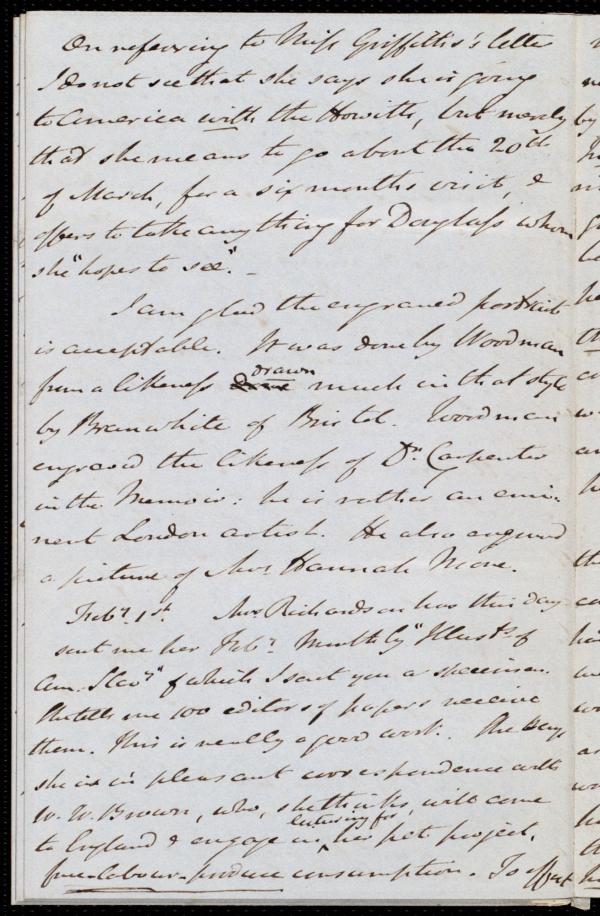 On referring to Miss Griffitts's letter
I do not see that she says she is going
to America with the Howitts, but merely
that she means to go about the 20th
of March, for a six months visit, &
offers to take anything for Douglass whom
she "hopes to see". -
I am glad the engraved portrait
is acceptable. It was done by Woodman
from a likeness drawn much in that style
by Branwhite of Bristol. Woodman
engraved the likeness of Dr. Carpenter
in the Memoir: he is rather an emi-
nent London artist. He also engraved
a picture of Mrs. Hannah More.
Feby. 1st. Mrs. Richardson has this day
sent me her Feby. Monthly "Illusts. of
Am. Slavy" of which I sent you a specimen.
She tells me 100 editors of papers receive
them. This is really a good work. She says
she is in pleasant correspondence with
W. W. Brown, who, she thinks, will come
to England & engage in lecturing for her pet project,
free-labour-produce consumption. To effect